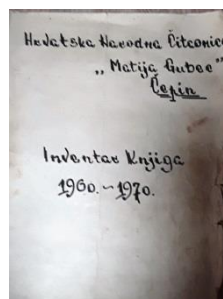 Hrvatska Narodna Čitaonica
„Matija Gubec”
Čepin
Inventar Knjiga
1960.-1970.